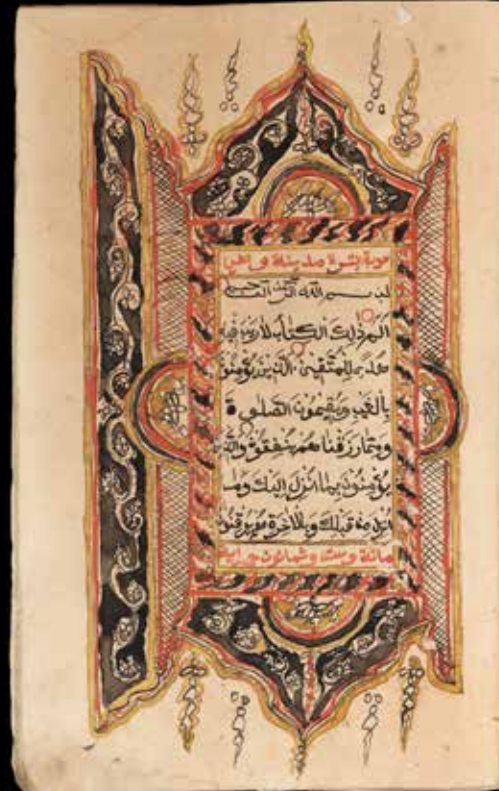 سورة بقرة مدينة وهي
بسم الله الرحمن الرحيم
الم ذلك الكتاب لا ريب فيه
هدى للمتقين الذين يؤمنون
بالغيب ويقيمون الصلوة
ومما رزقنهم ينفقون والذين
يؤمنون بما انزل اليك وما
انزل من قبلك وبالاخرة هم يوقنون
مائة وست وثمانون اية